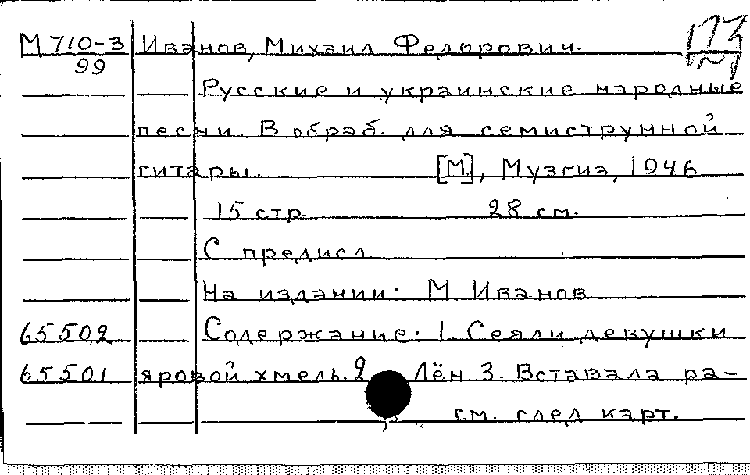 М 710-3 Иванов, Михаил Федорович.
99
Русские и украинские народные
песни. В обраб. для семиструнной
гитары. [М.], Музгиз, 1946
15 стр. 28 см.
С предисл.
На издании: М. Иванов
65502 Содержание: 1. Сеяли девушки
65501 яровой хмель. 2. Лён 3. Вставала ра-
см. след. карт.